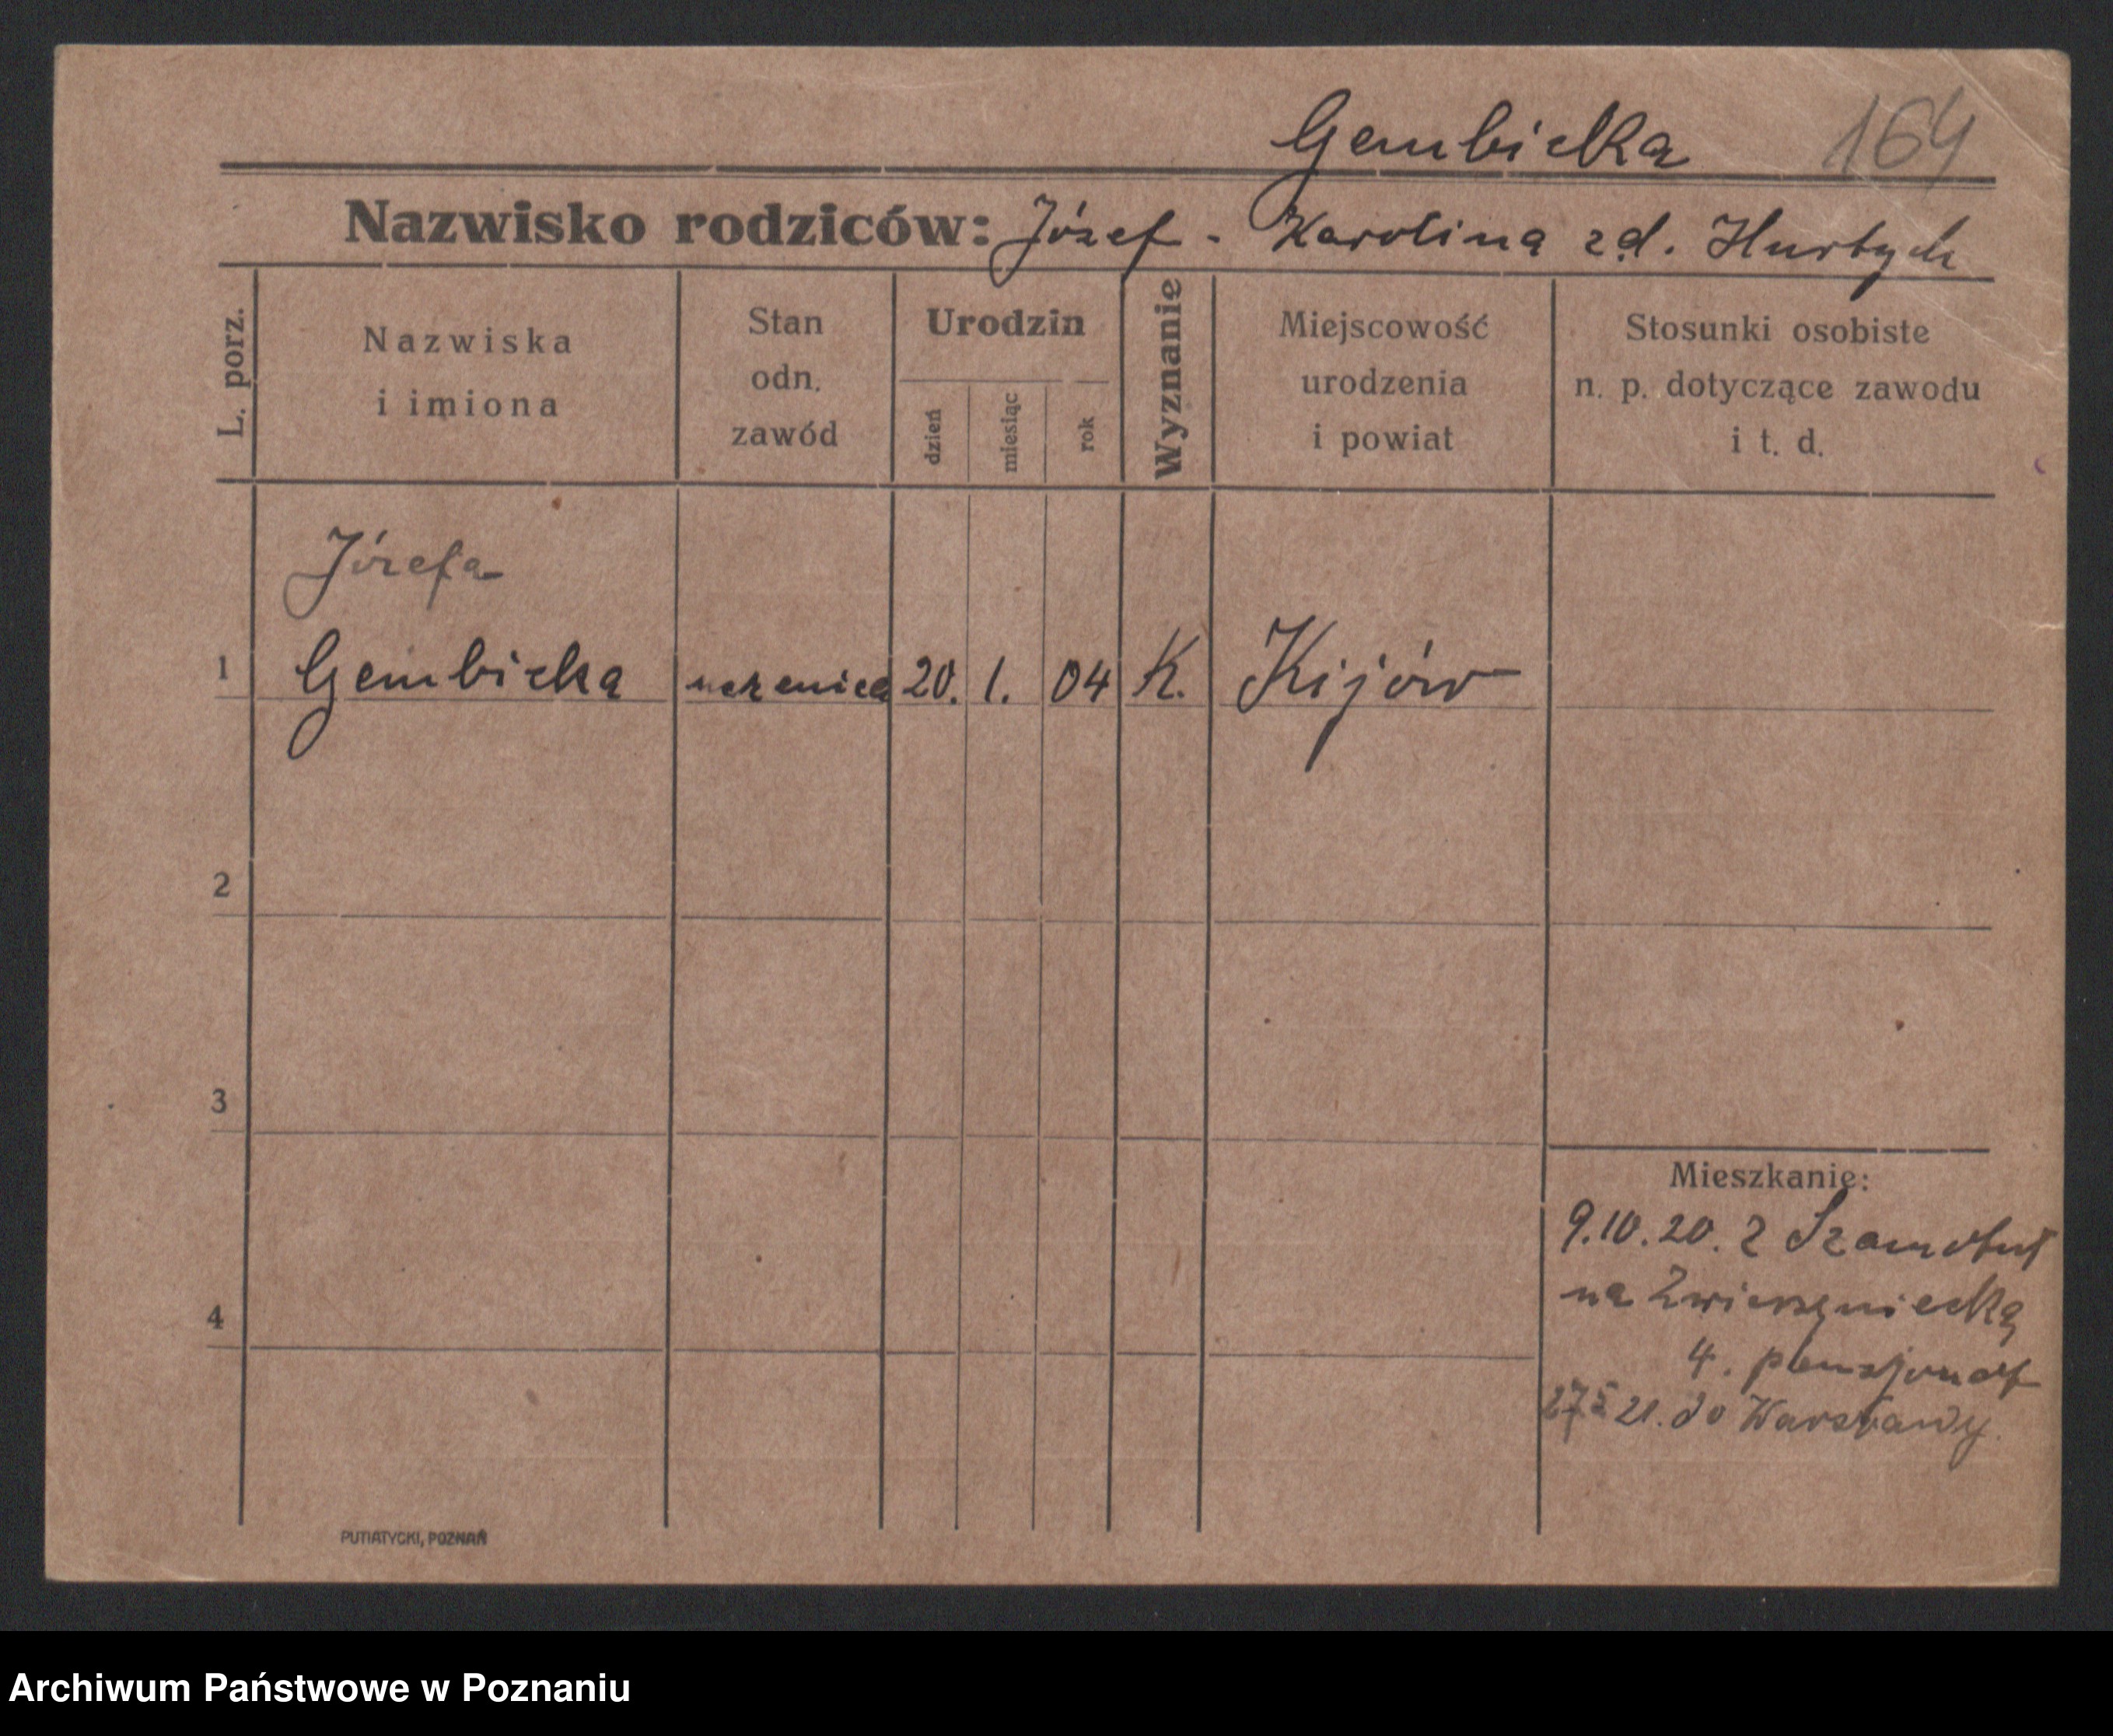 Gembicka 164
Nazwisko rodziców: Józef - Karolina zd. Hurtych
L. porz.
Nazwiska
i imiona
Stan
odn.
zawód
Urodzin
dzień
miesiąc
rok
Wyznanie
Miejscowość
urodzenia
i powiat
Stosunki osobiste
n. p. dotyczące zawodu
i t. d.
Józefa
1 Gembicka uczenica 20. 1. 04 K. Kijów
2
3
4
Mieszkanie:
9.10.20. z Szamotuł
na Zwierzyniecką
4. pensjonat
27 5 21. do Warszawy.
PUTIATYCKI, POZNAŃ
Archiwum Państwowe w Poznaniu